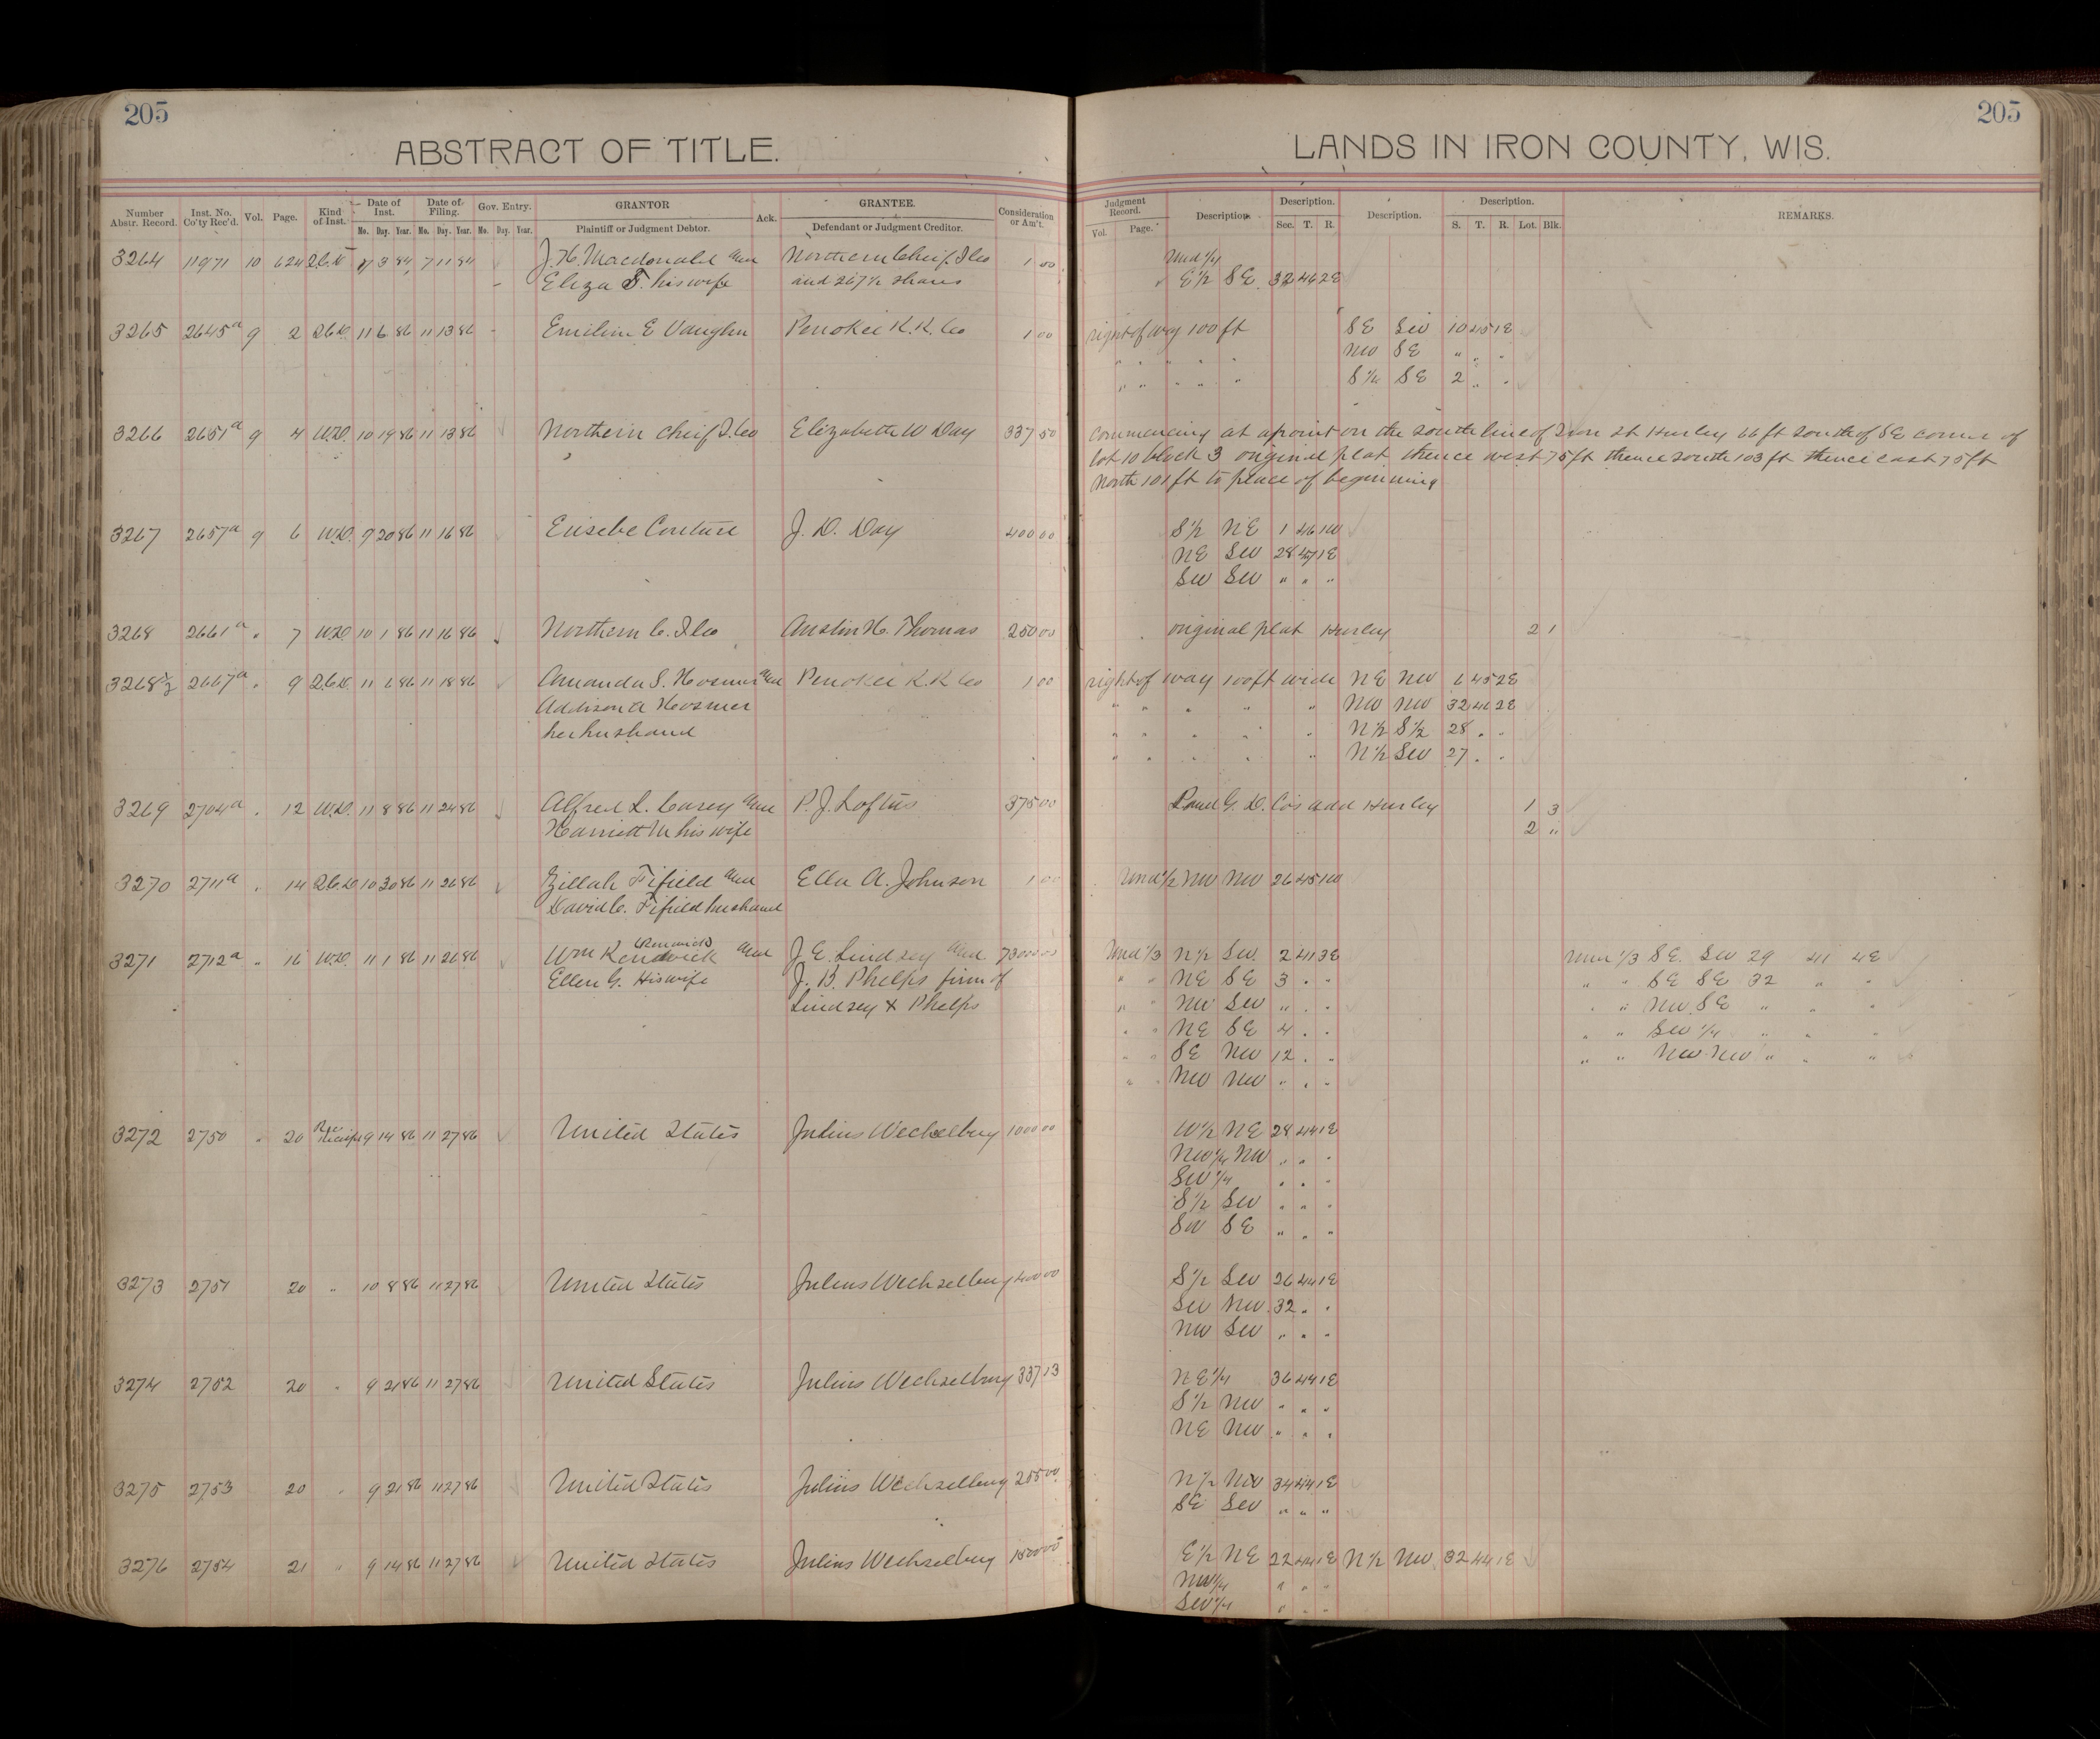 205
205
ABSTRACT OF TITLE.
LANDS IN IRON COUNTY, WIS.
Number Abstr. Record. Inst. No. Co'ty Rec'd. Vol. Page. Kind of Inst. Date of Inst. Date of Filing. Gov. Entry. GRANTOR Ack. GRANTEE. Consideration or Am't. Judgment Record. Description. Description. Description. Description. REMARKS.
Mo. Day. Year. Mo. Day. Year. Mo. Day. Year. Plaintiff or Judgment Debtor. Defendant or Judgment Creditor. Vol. Page. Sec. T. R. S. T. R. Lot. Blk.
3264 11971 10 624 Q.C.D. 7 3 84 7 11 84 J. H. Macdonald and Northern Chief I Co 1 00 Und 1/4
Eliza F. his wife and 267 1/2 shares E 1/2 SE 32 46 2E
3265 2645a 9 2 Q.C.D. 11 6 86 11 13 86 Emiline E Vaughn Penokee R.R. Co 1 00 right of way 100 ft SE SW 10 45 1E
" " " " " NW SE " " "
" " " " " S 1/2 SE 2 " "
3266 2651a 9 4 W.D. 10 19 86 11 13 86 Northern Chief I. Co Elizabeth W Day 337 50 Commencing at a point on the south line of Iron St Hurley 66 ft south of SE corner of
lot 10 block 3 original plat thence west 75 ft thence south 103 ft thence east 75 ft
North 101 ft to place of beginning
3267 2657a 9 6 W.D. 9 20 86 11 16 86 Eusebe Couture J. D. Day 400 00 S 1/2 NE 1 46 1W
NE SW 28 47 1E
SW SW " " "
3268 2661a " 7 W.D. 10 1 86 11 16 86 Northern C. I Co Austin H. Thomas 250 00 original plat Hurley 2 1
3268 1/2 2667a " 9 Q.C.D. 11 6 86 11 18 86 Amanda S. Hosmer and Penokee R.R Co 1 00 right of way 100 ft wide NE NW 6 45 2E
Addison A Hosmer " " " " " NW NW 32 46 2E
her husband " " " " " N 1/2 S 1/2 28 " "
" " " " " N 1/2 SW 27 " "
3269 2704a " 12 W.D. 11 8 86 11 24 86 Alfred L. Carey and P. J. Loftus 375 00 G. D. Co's add Hurley 1 3
Harriett M his wife 2 "
3270 2711a " 14 Q.C.D. 10 30 86 11 26 86 Zillah Fifield and Ella A. Johnson 1 00 Und 1/2 NW NW 26 45 1W
David C. Fifield husband
3271 2712a " 16 W.D. 11 1 86 11 26 86 Wm R Kendwick (Renwick) and J. E. Lindsay and 73000 00 Und 1/3 N 1/2 SW 2 41 3E Und 1/3 SE SW 29 41 4E
Ellen G. His wife J. B. Phelps firm of " " NE SE 3 " " " " SE SE 32 " "
Lindsey & Phelps " " NW SW " " " " " NW SE " " "
" " NE SE 4 " " " " SW 1/4 " " "
" " SE NW 12 " " " " NW NW " " "
" " NW NW " " "
3272 2750 " 20 Rec Receipt 9 14 86 11 27 86 United States Julius Wechselburg 1000 00 W 1/2 NE 28 44 1E
NW 1/4 NW " " "
SW 1/4 " " "
S 1/2 SW " " "
SW SE " " "
3273 2751 20 " 10 8 86 11 27 86 United States Julius Wechselburg 400 00 S 1/2 SW 26 44 1E
SW NW 32 " "
NW SW " " "
3274 2752 20 " 9 21 86 11 27 86 United States Julius Wechselburg 337 13 NE 1/4 36 44 1E
S 1/2 NW " " "
NE NW " " "
3275 2753 20 " 9 21 86 11 27 86 United States Julius Wechselburg 255 00 N 1/2 NW 34 44 1E
SE SW " " "
3276 2754 21 " 9 14 86 11 27 86 United States Julius Wechselburg E 1/2 NE 22 44 1E N 1/2 NW 32 44 1E
NW 1/4 " " "
SW 1/4 " " "